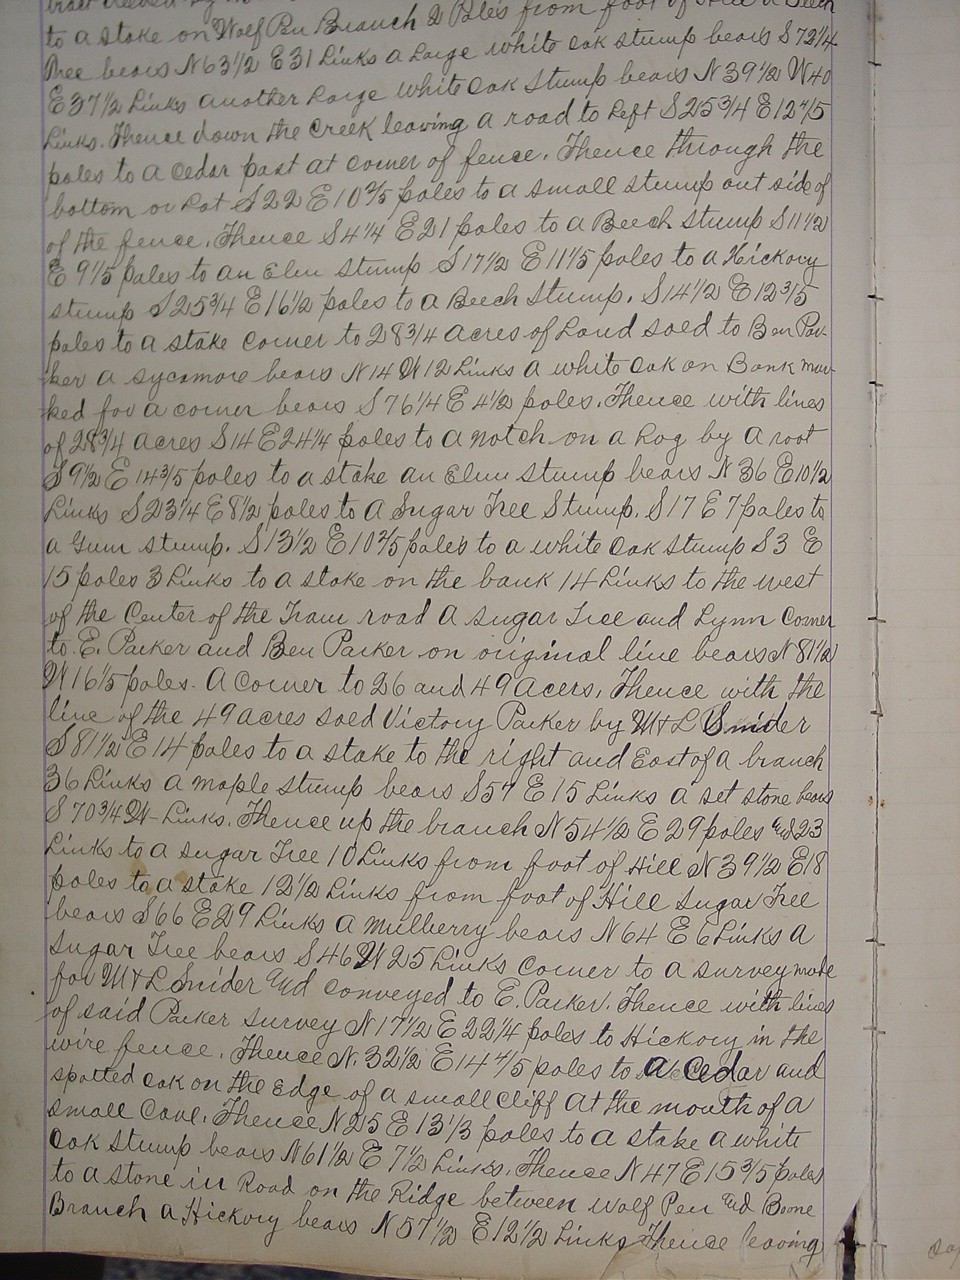 to a stake on Wolf Pen Branch 2 Poles from foot of Hill a Beech
Tree bears N63½ E31 Links a Large white oak stump bears S72¼
E37½ Links another Large white oak stump bears N39½ W40
Links. Thence down the Creek leaving a road to Left S25¾ E12⅘
poles to a Cedar post at corner of fence. Thence through the
bottom or Lot S22 E10⅖ poles to a small stump out side of
of the fence. Thence S4¼ E21 poles to a Beech stump S11½
E 9⅕ poles to an Elm stump S17½ E11⅕ poles to a Hickory
stump S25¾ E16½ poles to a Beech Stump. S14½ E12⅗
poles to a stake corner to 28¾ acres of Land soed to Ben Par-
ker a sycamore bears N14 W12 Links a white oak on Bank mar-
ked for a corner bears S76¼ E 4½ poles. Thence with lines
of 28¾ acres S14 E24¼ poles to a notch on a Log by a root
S9½ E 14⅗ poles to a stake an Elm Stump bears N36 E10½
Links S23¼ E8½ poles to a Sugar Tree Stump. S17 E7 poles to
a Gum stump. S13½ E10⅖ poles to a white oak stump S3 E
15 poles 3 Links to a stake on the bank 14 Links to the west
of the Center of the Tram road a sugar Tree and Lynn Corner
to E. Parker and Ben Parker on original line bears N81½
W16⅕ poles. A Corner to 26 and 49 Acers. Thence with the
line of the 49 acres soed Victory Parker by M&L Snider
S81½ E14 poles to a stake to the right and East of a branch
36 Links a maple stump bears S57 E15 Links a set stone bears
S70¾ W- Links. Thence up the branch N54½ E29 poles and 23
Links to a sugar Tree 10 Links from foot of Hill N39½ E18
poles to a stake 12½ Links from foot of Hill Sugar Tree
bears S66 E29 Links a mulberry bears N64 E6 Links a
Sugar Tree bears S46 W25 Links Corner to a survey made
for M&L Snider and conveyed to E. Parker. Thence with lines
of said Parker survey N17½ E22¼ poles to Hickory in the
wire fence. Thence N.32½ E14⅘ poles to a Cedar and
spotted oak on the Edge of a small cliff at the mouth of a
small Cave. Thence N25 E13⅓ poles to a stake a white
oak stump bears N61½ E7½ Links. Thence N47 E15⅗ poles
to a stone in Road on the Ridge between Wolf Pen and Boone
Branch a Hickory bears N57½ E12½ Links Thence leaving